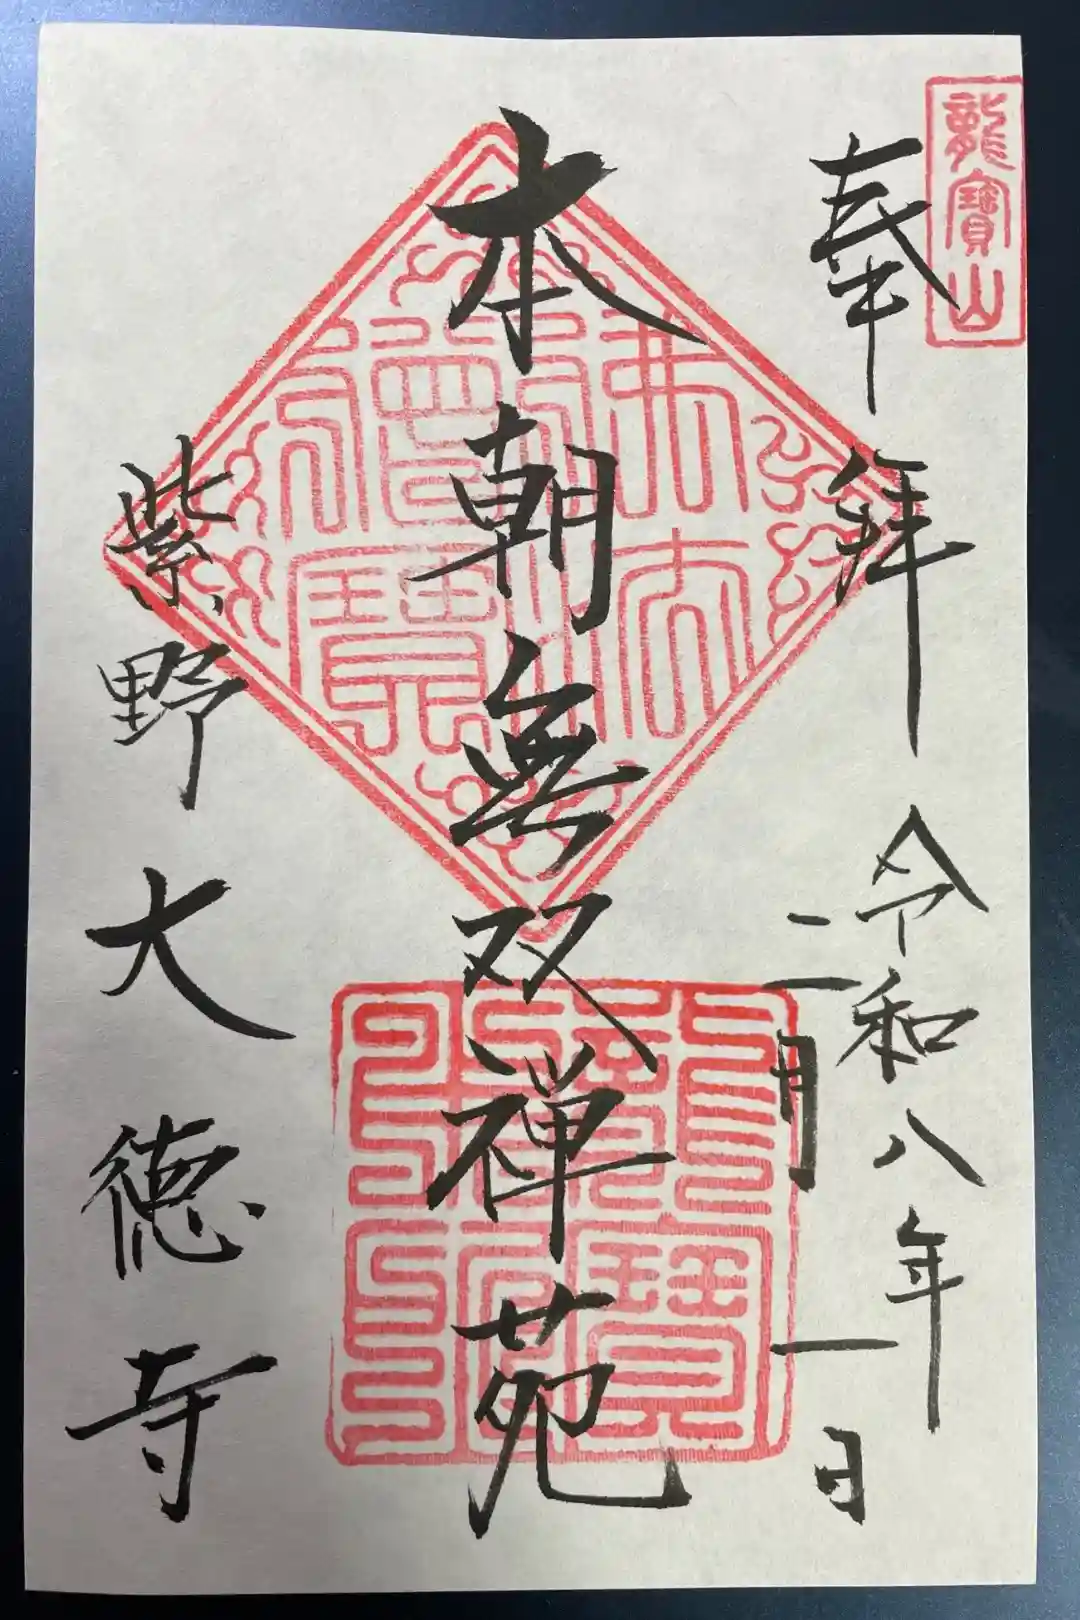 龍寶山
奉拜
令和八年
二月一日
本朝無双禅苑
紫野大徳寺